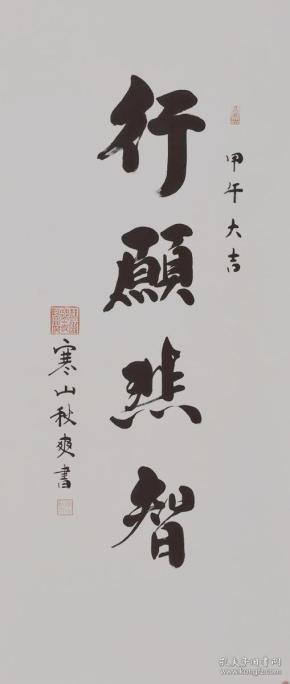 甲午大吉
行願悲智
寒山秋爽書
孔夫子旧书网
kongfz.com